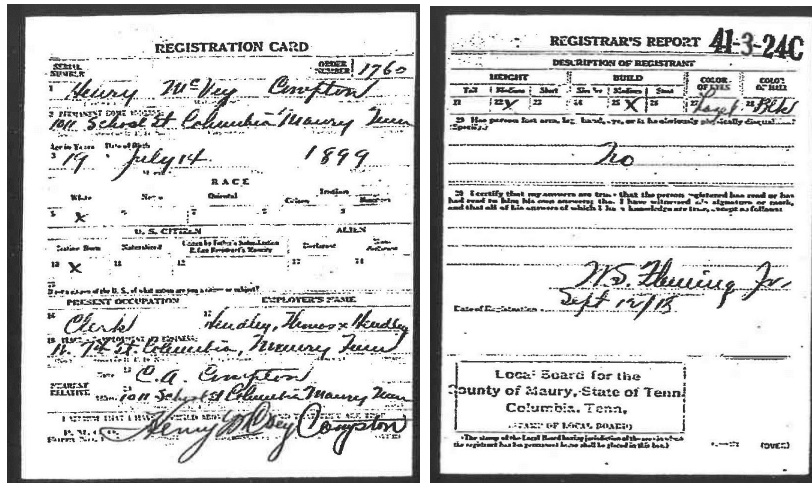 REGISTRATION CARD
SERIAL NUMBER
ORDER NUMBER 1760
1 Henry McVey Compton
2 PERMANENT HOME ADDRESS
1011 School St Columbia Maury Tenn
Age in Years Date of Birth
3 19 July 14 1899
RACE
White Negro Oriental Indian
Citizen
5 X 6 7 8 9
U. S. CITIZEN ALIEN
Native Born Naturalized Citizen by Father's Naturalization Declarant
10 X 11 12 13 14
15 If not a citizen of the U. S., of what nation are you a citizen or subject?
PRESENT OCCUPATION EMPLOYER'S NAME
16 Clerk 17
18
W. 7th St. Columbia Maury Tenn
NEAREST RELATIVE
Name 19 C. A. Compton
20 1011 School St Columbia Maury Tenn
I AFFIRM THAT I HAVE
Henry McVey Compton
P. M. G. O.
Form No. 1
REGISTRAR'S REPORT 41-3-24C
DESCRIPTION OF REGISTRANT
HEIGHT BUILD COLOR OF EYES COLOR OF HAIR
Tall Medium Short Slender Medium Stout
21 22 X 23 24 25 X 26 27 28 Blk
29 Has person lost arm, leg, hand, eye, or is he obviously physically disqualified?
(Specify.)
No
30 I certify that my answers are true; that the person registered has read or has
had read to him his own answers; that I have witnessed his signature or mark,
and that all of his answers of which I have knowledge are true, except as follows:
W. S. Fleming Jr.
Date of Registration Sept 12/18
Local Board for the
County of Maury, State of Tenn
Columbia, Tenn.
(STAMP OF LOCAL BOARD)
(The stamp of the Local Board having jurisdiction of the area in which
the registrant has his permanent home shall be placed in this box.)
(OVER)